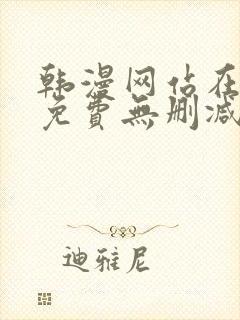 韩漫网站在
免費無删减
迪雅尼